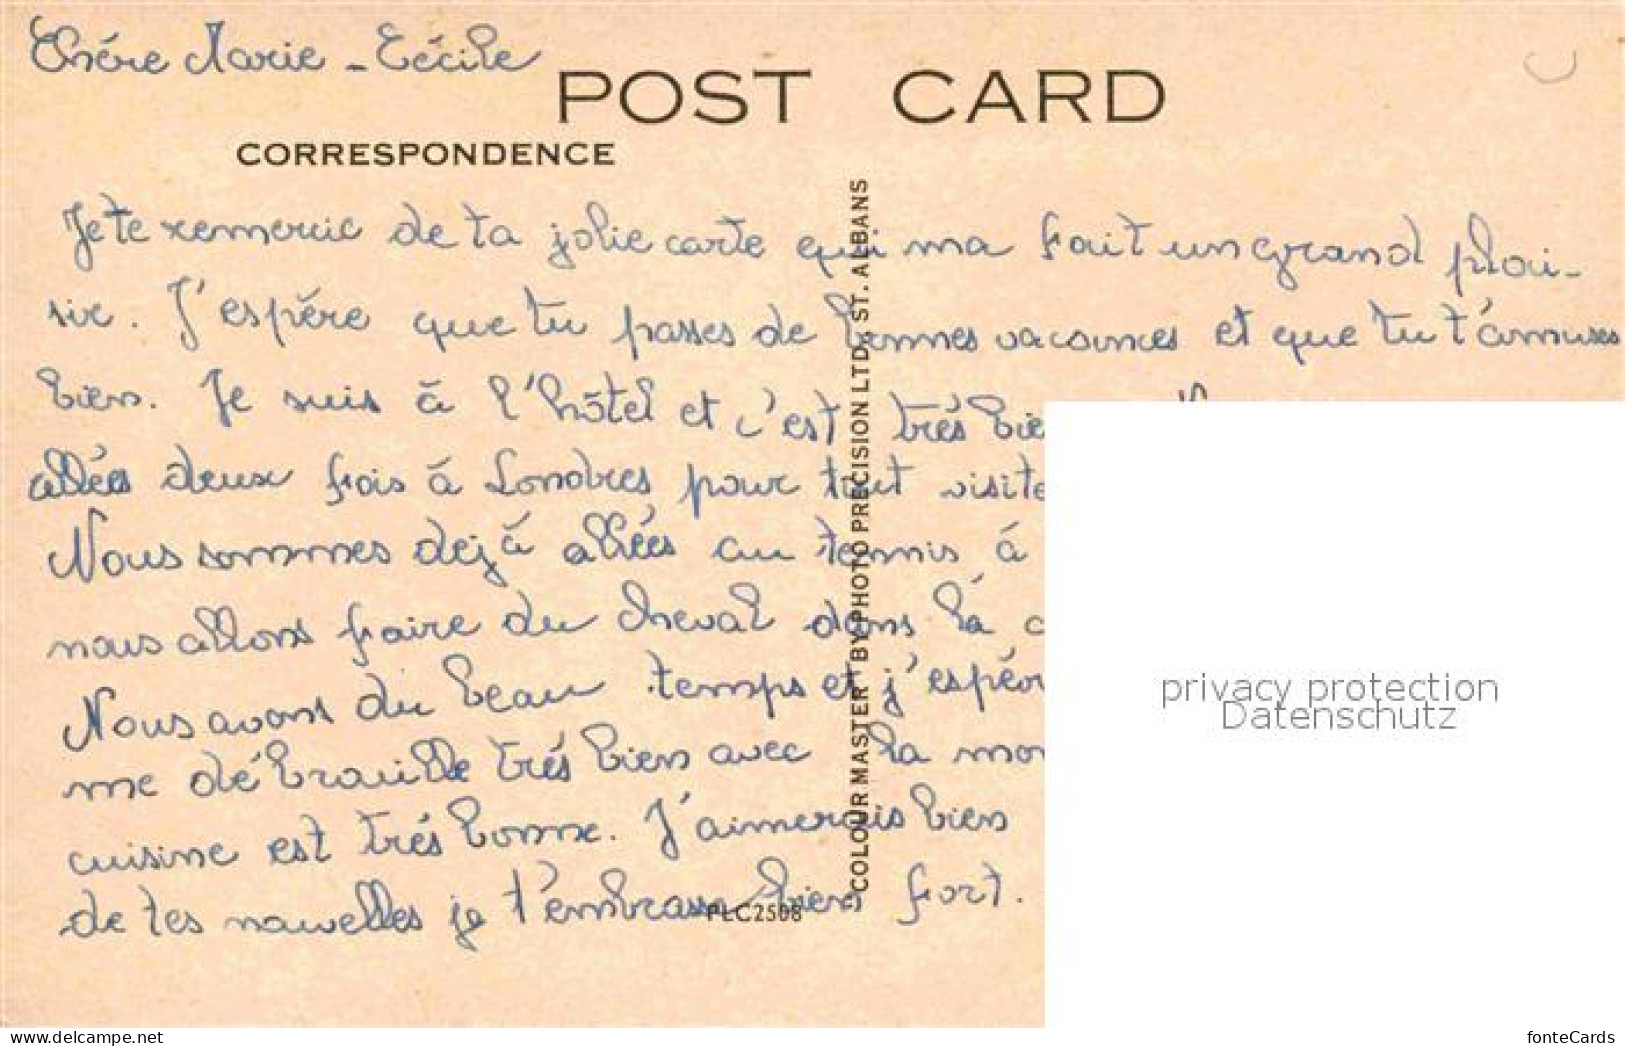 Chére Marie - Cécile
POST CARD
CORRESPONDENCE
Je te remercie de ta jolie carte qui ma fait un grand plai-
sir. J'espére que tu passes de bonnes vacances et que tu t'amuses
bien. Je suis à l'hôtel et c'est trés bie
allées deux fois à Londres pour tout visite
Nous sommes dejà allées au tennis à
nous allons faire du cheval dans la c
Nous avons du beau temps et j'espér
me débrouille trés bien avec la mon
cuisine est trés bonne. J'aimerais bien
de tes nouvelles je t'embrasse bien fort.
COLOUR MASTER BY PHOTO PRECISION LTD. ST. ALBANS
PLC2508
privacy protection
Datenschutz
https://www.delcampe.net
fonteCards